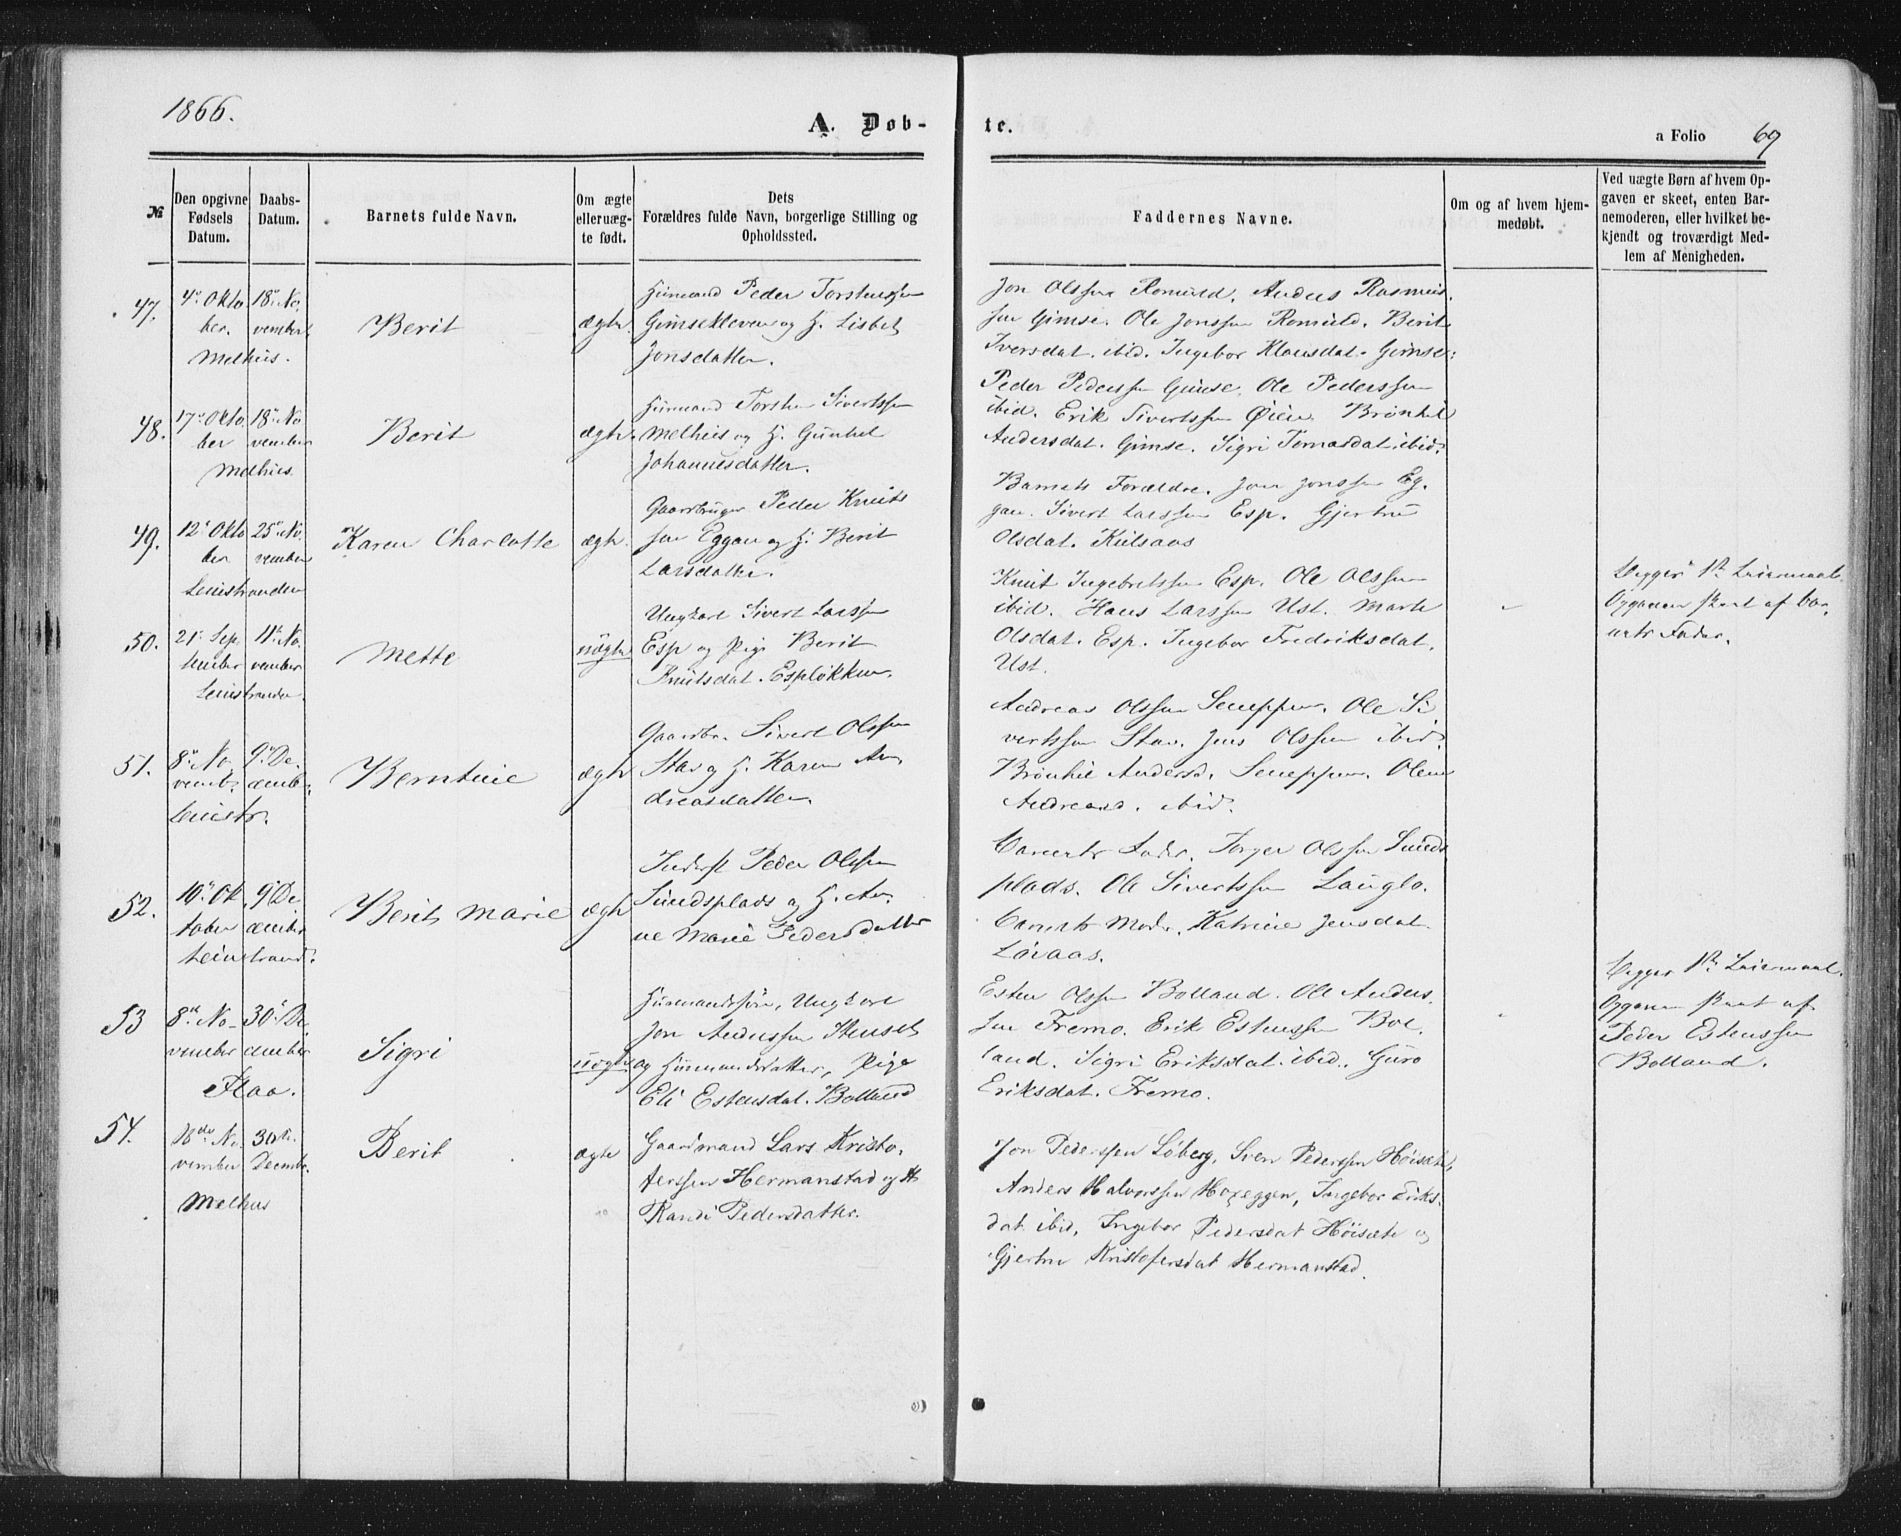 1866.
A. Døb-
te.
a Folio 69
№
Den opgivne Fødsels Datum.
Daabs-Datum.
Barnets fulde Navn.
Om ægte elleruæg-te født.
Dets Forældres fulde Navn, borgerlige Stilling og Opholdssted.
Faddernes Navne.
Om og af hvem hjem-medøbt.
Ved uægte Børn af hvem Op-gaven er skeet, enten Bar-nemoderen, eller hvilket be-kjendt og troværdigt Med-lem af Menigheden.
47.
4de Okto
ber.
18de No
vember
Melhus.
Berit
ægte
Huusmand Peder Torstensen
Gimsekleven og H. Lisbet
Jonsdatter.
Jon Olssen Romuld. Anders Rasmus
sen Gimse. Ole Jonssen Romuld. Berit
Iversdat. ibid. Ingebor Klausdat. Gimse.
48.
17de Okto
ber
18de No
vember
Melhus
Berit
ægte
Huusmand Torsten Sivertssen
Melhus og H. Gunhel
Johannesdatter.
Peder Pederssen Gimse. Ole Pederssen
ibid. Erik Sivertssen Øien. Brønhil
Andersdat. Gimse. Sigri Tomasdat. ibid.
49.
12te Okto
ber
25de No
vember
Leinstranden
Karen Charlotte
ægte
Gaardbruger Peder Knuts
sen Eggan og H. Berit
Larsdatter.
Barnets Forældre. Jon Jonssen Eg-
gan. Sivert Larssen Esp. Gjertru
Olsdat. Kulsaas
50.
21de Sep
tember
11te No
vember
Leinstranden
Mette
uægte
Ungkarl Sivert Larssen
Esp og Pige Berit
Knutsdat. Espløkken.
Knut Ingebretssen Esp. Ole Olssen
ibid. Hans Larssen Ust. Marit
Olsdat. Esp. Ingebor Fredriksdat.
Ust.
Begges 1ste Leiermaal.
Opgaven skeet af Bar-
nets Fader.
51.
8de No
vemb.
9de De
cemb.
Leinstr.
Berntine
ægte
Gaardbr. Sivert Olssen
Stav og H. Karen An
dreasdatter.
Andreas Olssen Seneppen. Ole Si
vertssen Stav. Jens Olssen ibid.
Brønhil Andersd. Seneppen. Olen
Andreasd. ibid.
52.
10de Ok
tober
9de De
cember
Leinstrand.
Berit Marie
ægte
Inderst Peder Olssen
Sundsplads og H. An-
ne Marie Pedersdatter
Barnets Fader. Torger Olssen Sunds
plads. Ole Sivertssen Lauglo.
Barnets Moder. Katrine Jensdat.
Løvaas.
53
8de No-
vember
30te De
cember
Flaa.
Sigri
uægte
Huusmandssøn, Ungkarl
Jon Anderssen Stenset
og Huusmandsdatter, Pige
Eli Estensdat. Bolland
Esten Olssen Bolland. Ole Anders.
sen Fremo. Erik Estenssen Bol
land. Sigri Eriksdat. ibid. Guro
Eriksdat. Fremo.
Begges 1ste Leiermaal.
Opgaven skeet af
Peder Estenssen
Bolland.
54.
18de No-
vember
30te
Decembr.
Melhus
Berit
ægte
Gaardmand Lars Kristo-
ferssen Hermanstad og H
Randi Pedersdatter.
Jon Pederssen Løberg, Sven Pederssen Høisæte,
Anders Halvorssen Hoxeggen, Ingebor Eriks-
dat ibid, Ingebor Pedersdat Høisæte og
Gjertru Kristofersdat Hermanstad.